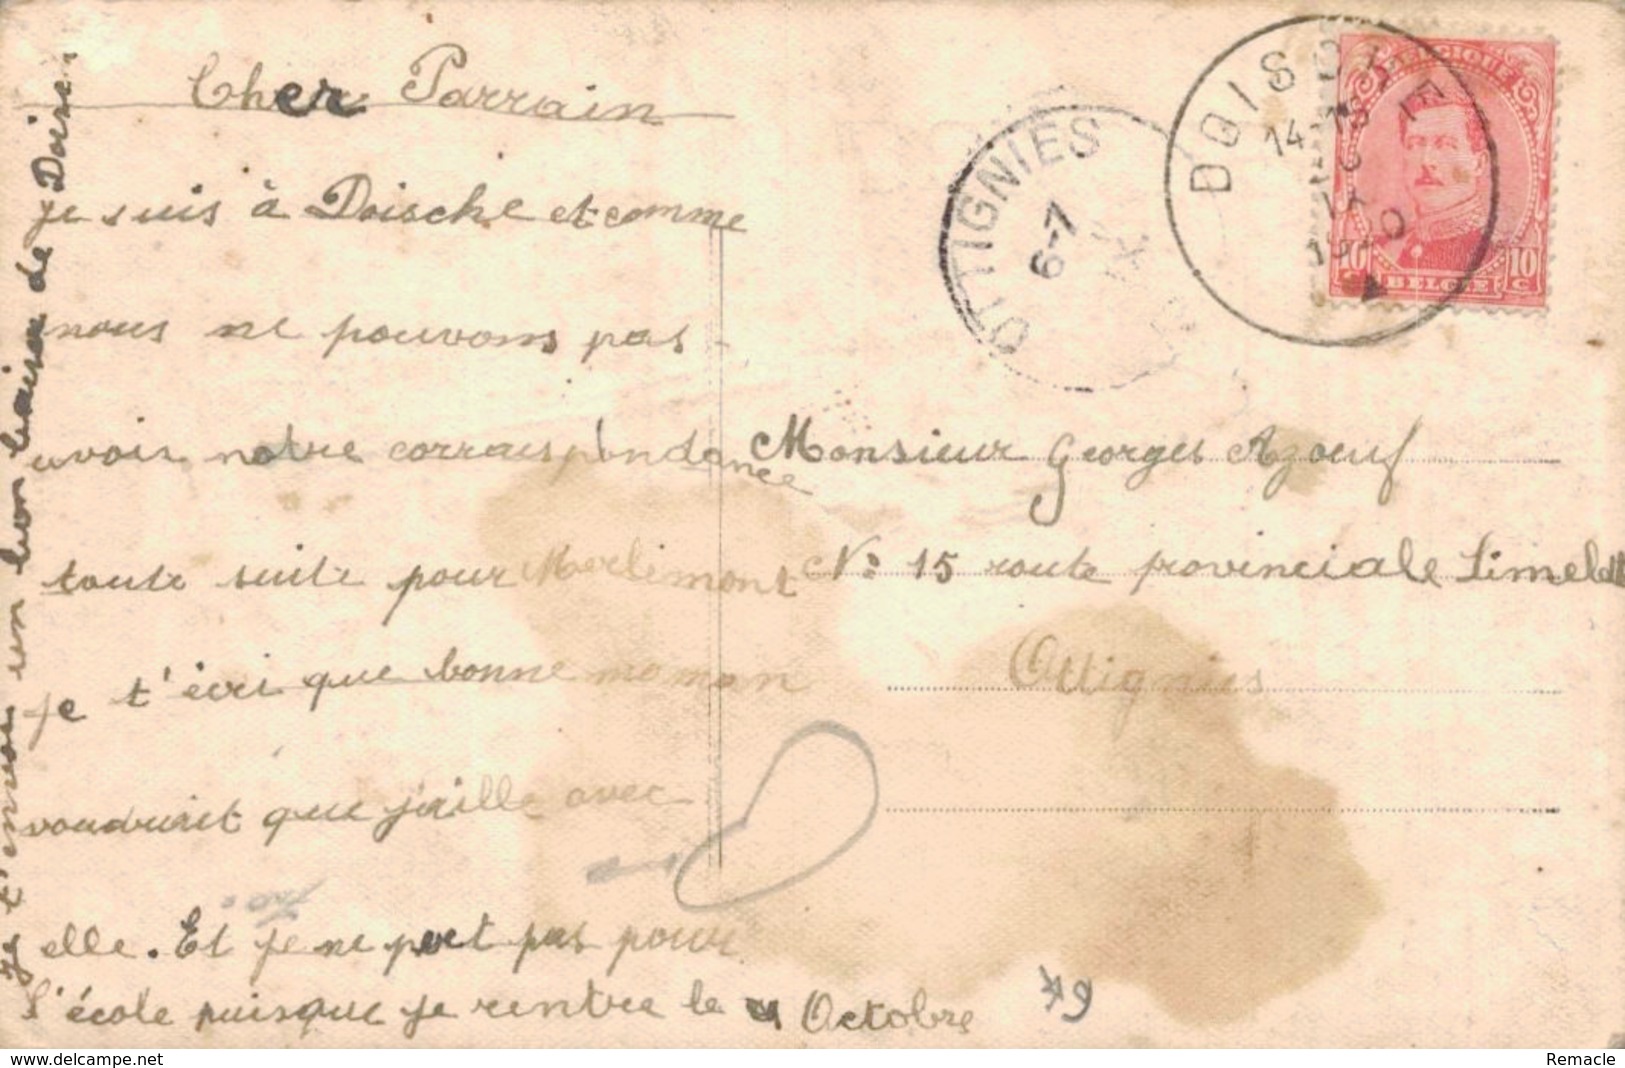 Cher Parrain
je suis à Doische et comme
nous ne pouvons pas
avoir notre correspondance
toute suite pour Merlimont
je t'écri que bonne maman
voudrait que j'aille avec
elle. Et je ne peut pas pour
l'école puisque je rentre le 4 Octobre
Je t'envoi un bon baiser de Doische
OTTIGNIES
6-7
IX
DOISCHE
14-15
6
IX
1920
BELGIQUE
10 C
10 C
BELGIE
Monsieur Georges Azoeuf
No: 15 route provinciale Limelette
Ottignies
49
delcampe.net
Remacle